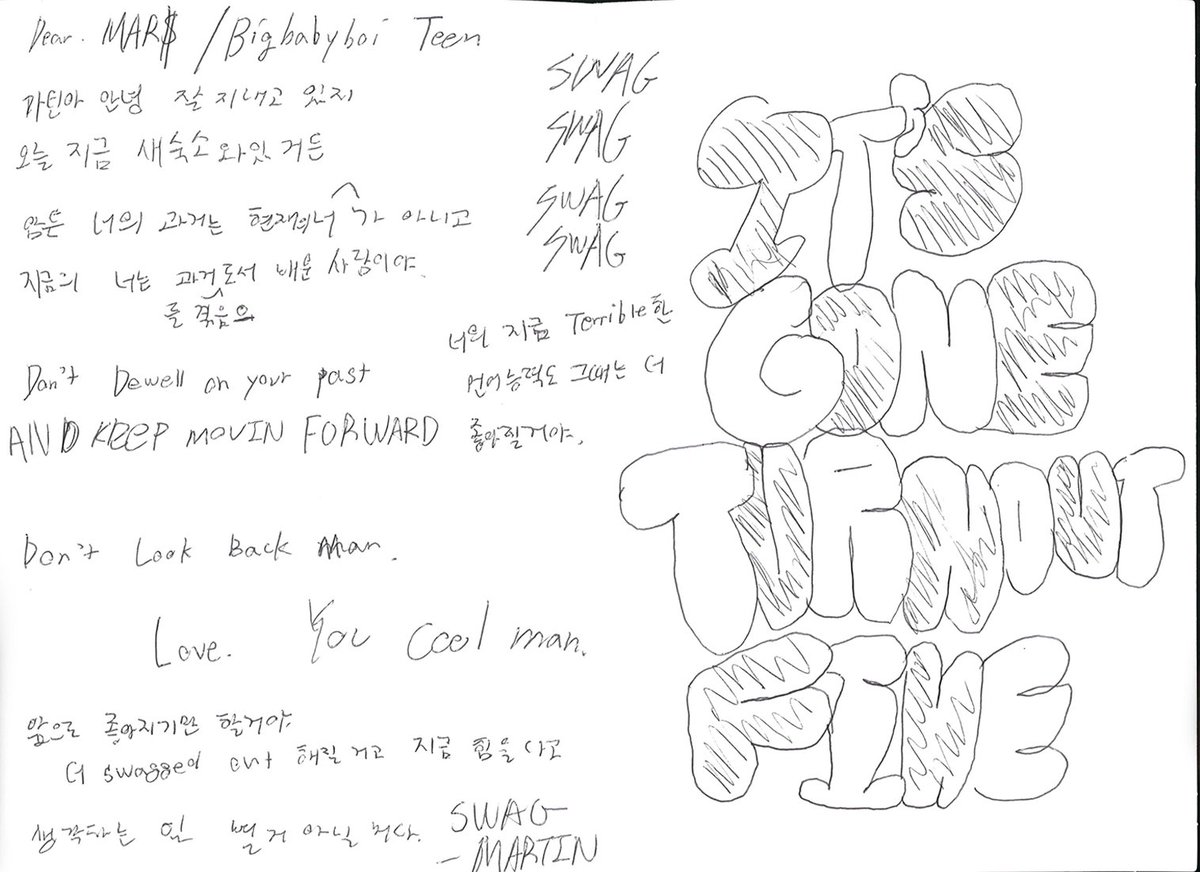 Dear. MAR$ / Bigbabyboi Teen
마틴아 안녕 잘 지내고 있지
오늘 지금 새숙소 와있 거든
암튼 너의 과거는 현재의너가 아니고
지금의 너는 과거로서 배운 사람이야.
를 겪음으
Don't Dewell on your past
AND KEEP MOVIN FORWARD
SWAG
SWAG
SWAG
SWAG
너의 지금 Terrible한
언어능력도 그때는 더
좋아질거야.
Don't Look Back Man.
Love. You cool man.
앞으로 좋아지기만 할거야
더 swagged out 해질 거고 지금 힘들다고
생각하는 일 별거 아닐 거다.
SWAG
- MARTIN
IT'S
GONE
TURN OUT
FINE